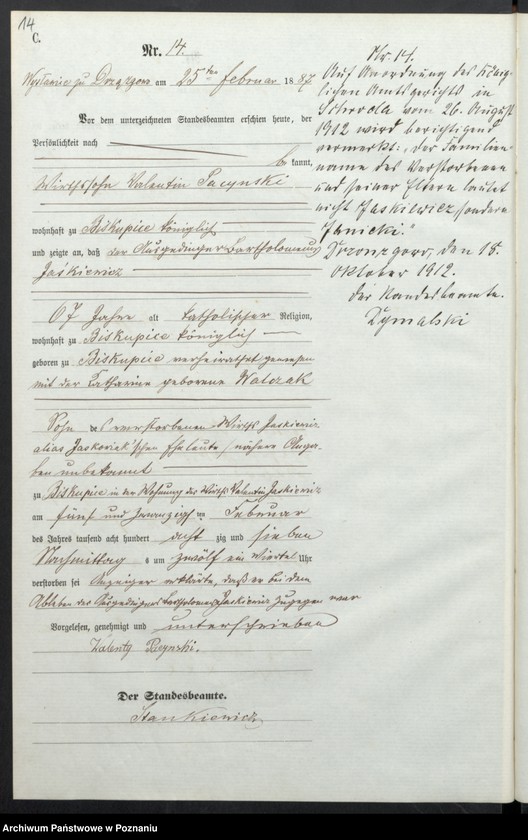 14
C.
Nr. 14.
am 25ten Februar 1887
Vor dem unterzeichneten Standesbeamten erschien heute, der
Persönlichkeit nach
bekannt,
Wirthssohn Valentin Pacynski
wohnhaft zu Biskupice Königlich
und zeigte an, daß der Ausgedinger Bartholomeus
Jaśkiewicz
67 Jahre alt katholischer Religion,
wohnhaft zu Biskupice Königlich
geboren zu Biskupice verheirathet gewesen
mit der Katharina geborene Walczak
Sohn des verstorbenen Wirths Jaskiewicz
alias Jaskoviak'schen Eheleute nähere Anga-
ben unbekannt
zu Biskupice in der Wohnung des Wirths Valentin Jaskiewicz
am fünf und zwanzigsten Februar
des Jahres tausend acht hundert achtzig und sieben
Nachmittags um zwölf ein Viertel Uhr
verstorben sei Anzeiger erklärte, daß er bei dem
Ableben des Ausgedingers Bartholomeus Jaskiewicz zugegen war
Vorgelesen, genehmigt und unterschrieben
Walenty Pacynski.
Der Standesbeamte.
Stankiewicz
Nr. 14.
Auf Anordnung des König-
lichen Amtsgerichts in
Schroda vom 26. August
1912 wird berichtigend
vermerkt: "der Familien-
name des Verstorbenen
und seiner Eltern lautet
nicht Jaskiewicz sondern
den 15.
Oktober 1912.
Der Standesbeamte.
Dymalski
Archiwum Państwowe w Poznaniu